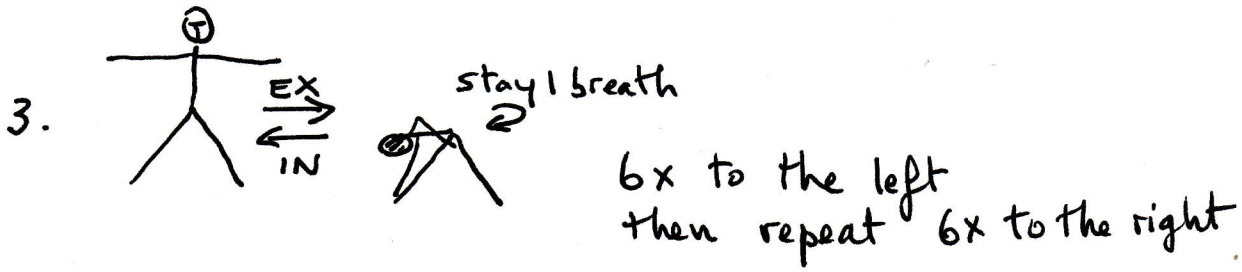 3.
EX
IN
stay 1 breath
6x to the left
then repeat 6x to the right